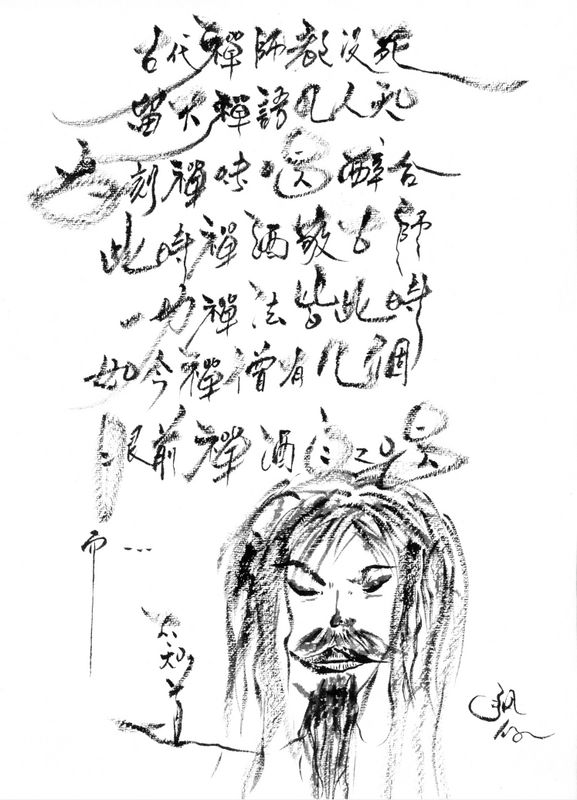 古代禪師都沒死
留大禪語几人知
古刻禪味喝醉台
此時禪酒敬古師
一切禪法皆此時
如今禪僧有几個
眼前禪酒自己喝
而…
不知道